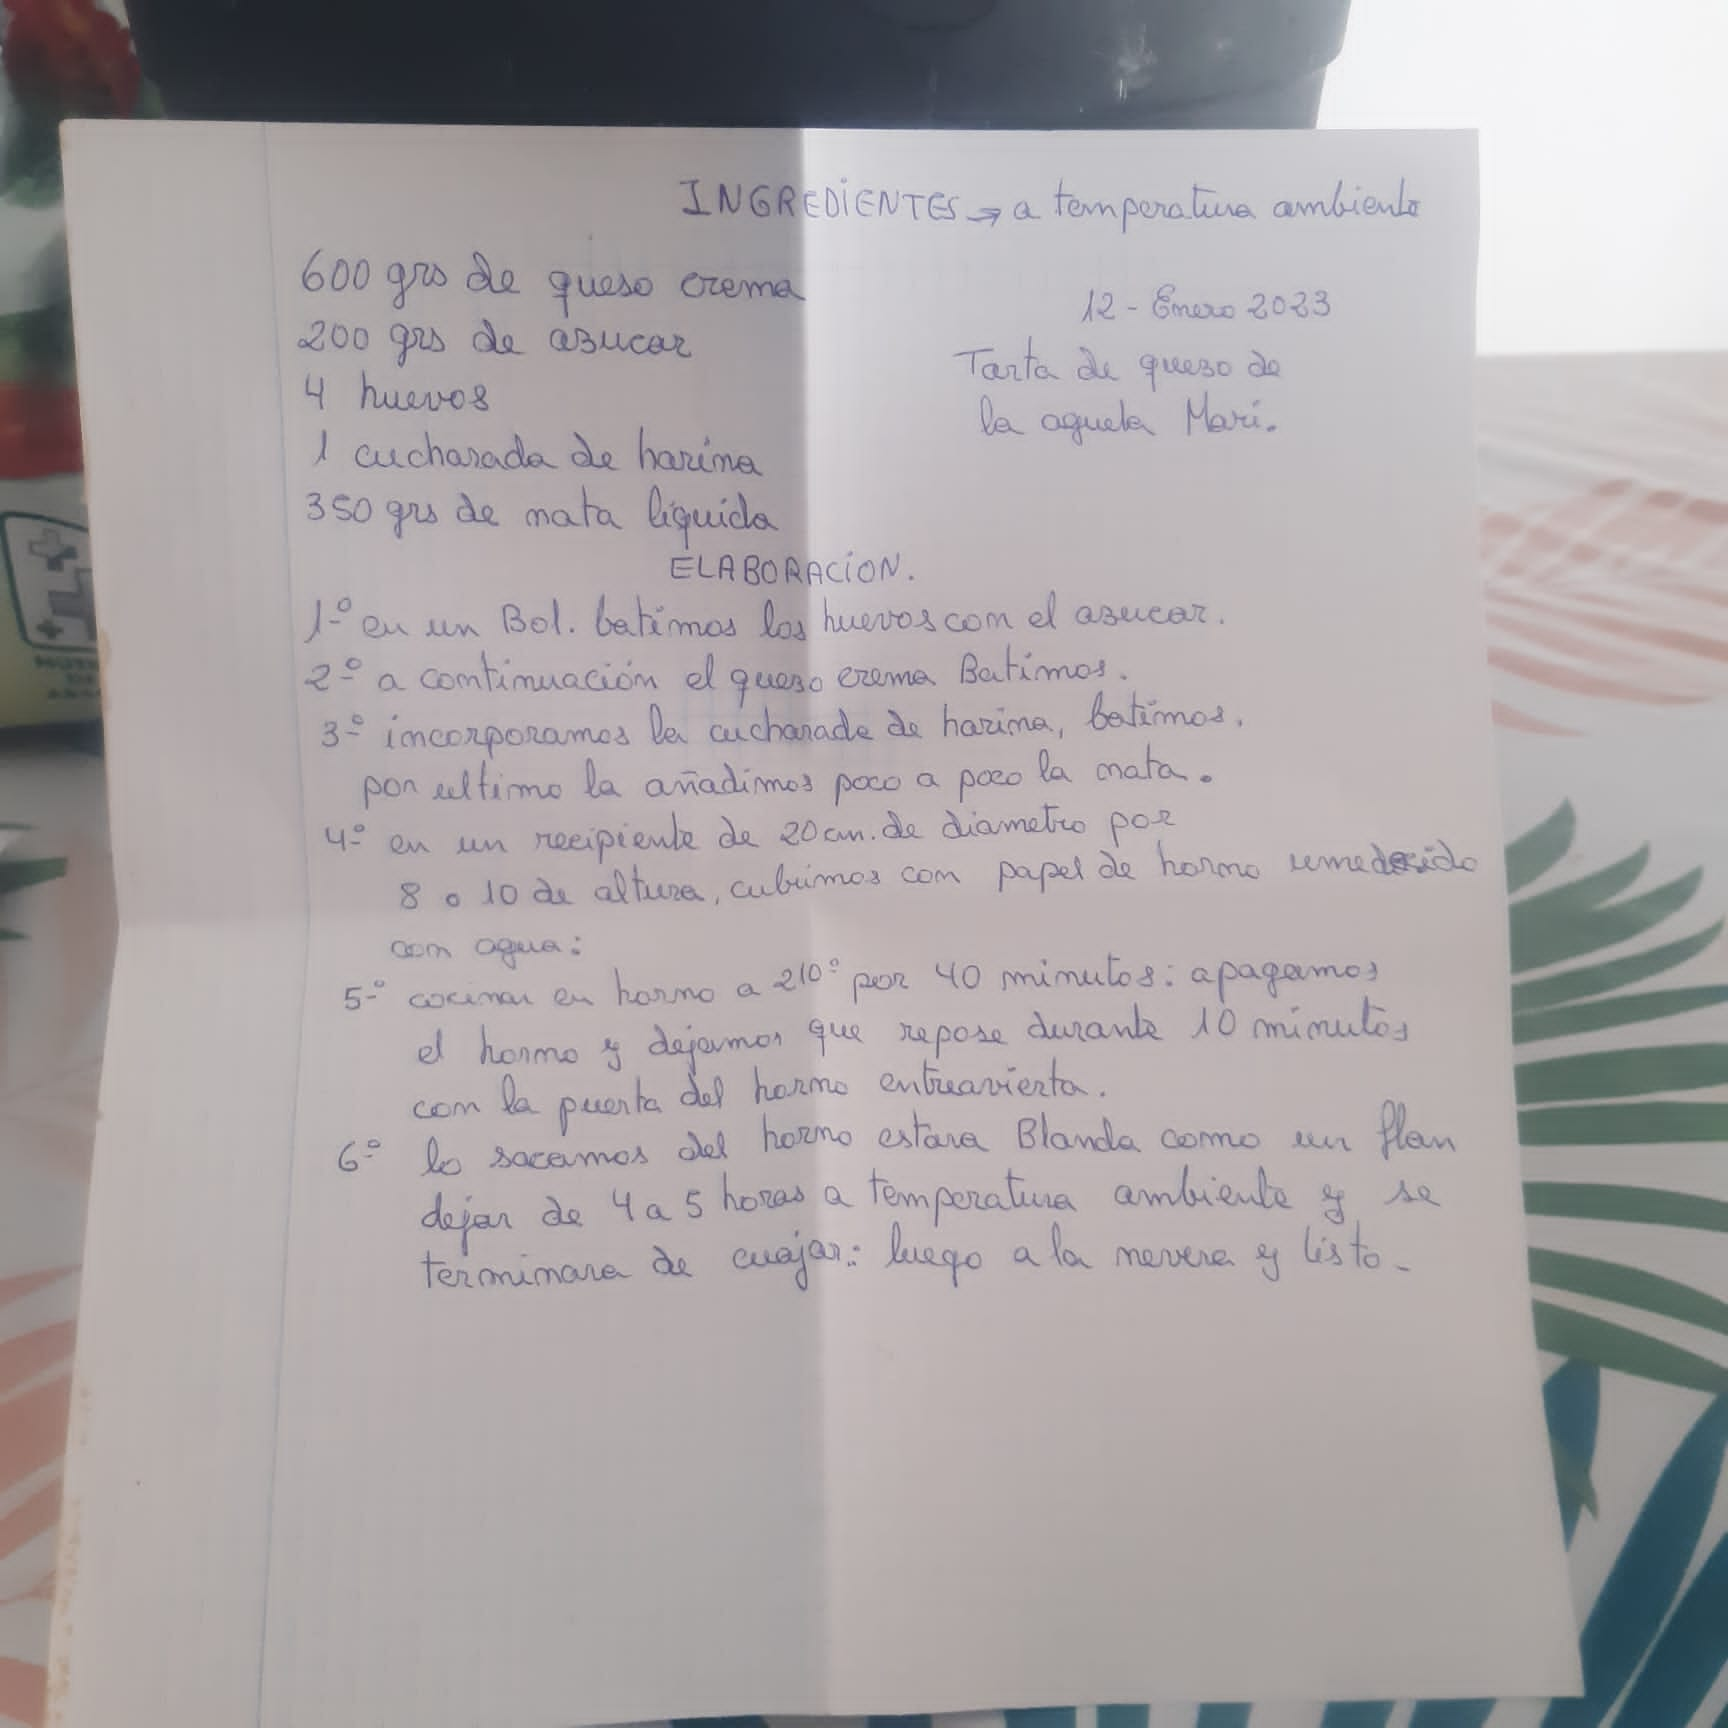 INGREDIENTES → a temperatura ambiente
600 grs de queso crema
200 grs de azucar
4 huevos
1 cucharada de harina
350 grs de nata liquida
12 - Enero 2023
Tarta de queso de
la aguela Mari.
ELABORACION.
1º en un Bol. batimos los huevos con el azucar.
2º a continuación el queso crema Batimos.
3º incorporamos la cucharada de harina, batimos.
por ultimo la añadimos poco a poco la nata.
4º en un recipiente de 20 cm. de diametro por
8 o 10 de altura, cubrimos con papel de horno umedecido
con agua:
5º cocinar en horno a 210º por 40 minutos: apagamos
el horno y dejamos que repose durante 10 minutos
con la puerta del horno entreavierta.
6º lo sacamos del horno estara Blanda como un flan
dejar de 4 a 5 horas a temperatura ambiente y se
terminara de cuajar: luego a la nevera y listo -